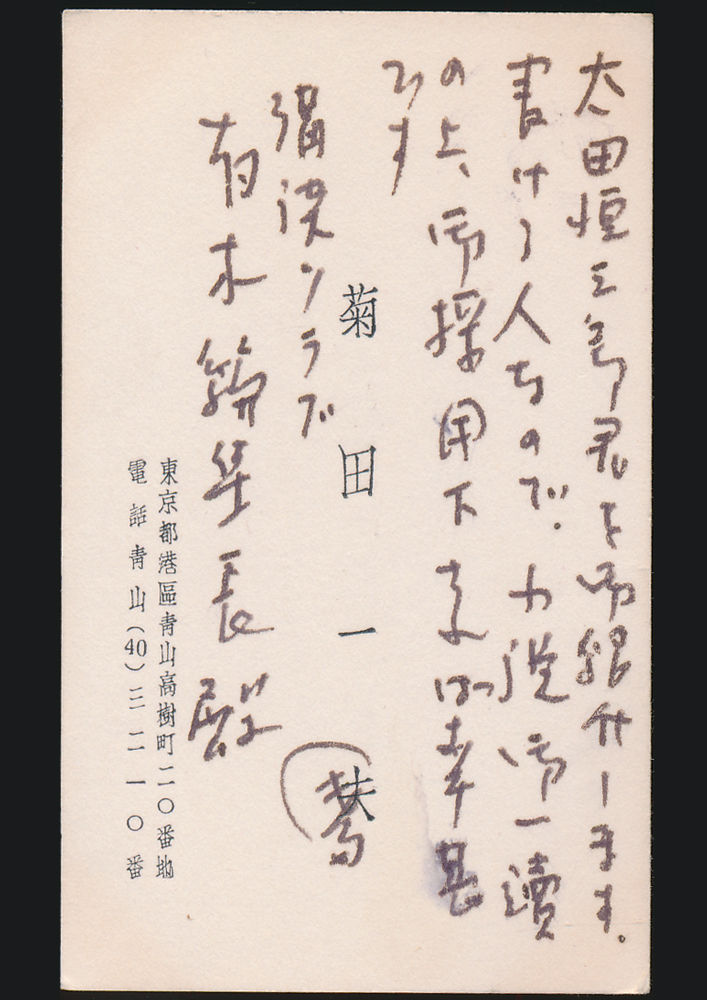 太田恒三郎君を御紹介します。
書ける人なので、小説御一讀
の上、御採用下されば幸甚
です
菊田一夫
講談クラブ
有木編集長殿
東京都港區青山高樹町二〇番地
電話青山(40)三二一〇番